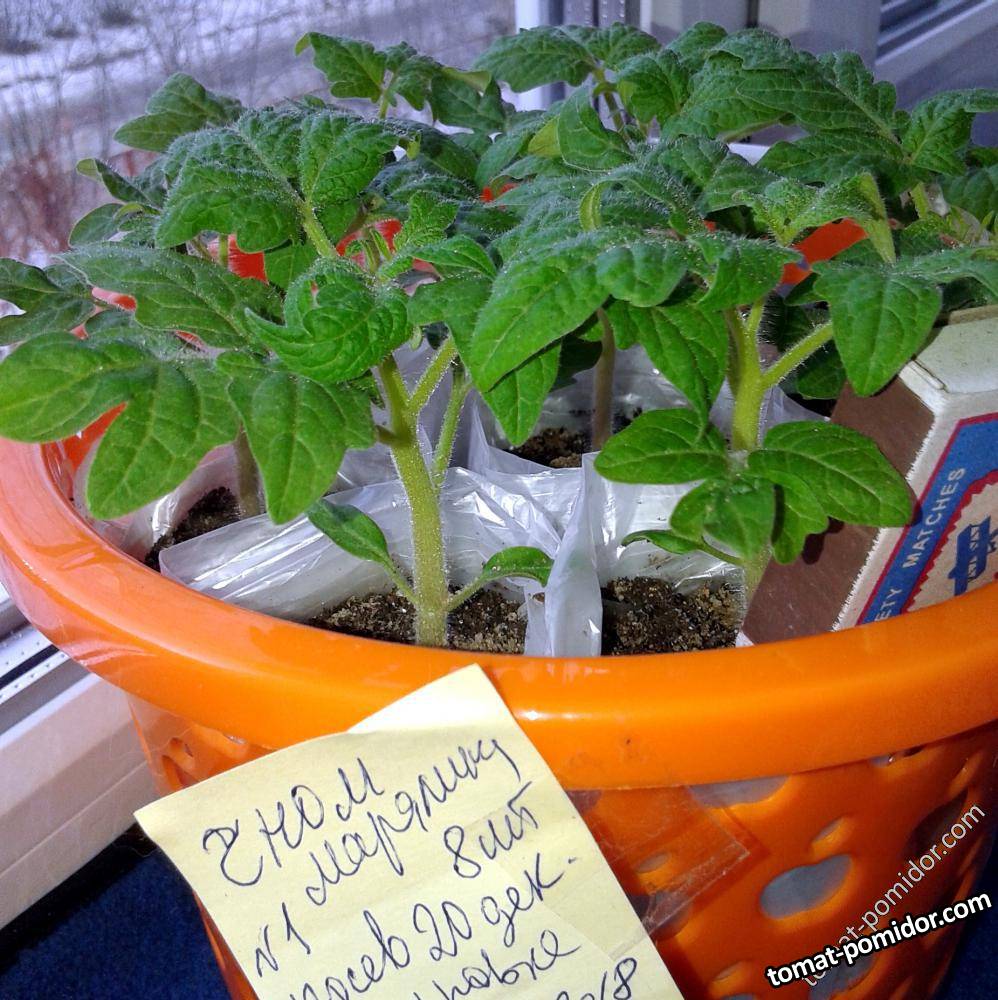 гном
марялину
№1 8шт
посев 20 дек.
2018
ETY MATCHES
tomat-pomidor.com
tomat-pomidor.com